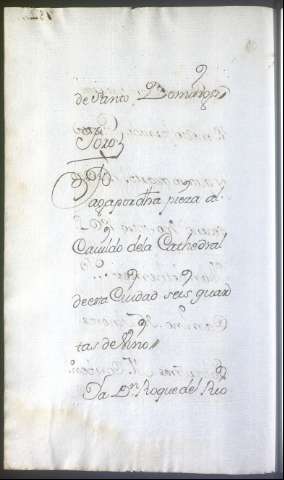 de Santo Domingo,
Toro,
Pagapordha pieza al
Cavildo dela Cathedral
decha Ciudad seis quar
tas de Vino
Ya Dn Roque del Rio